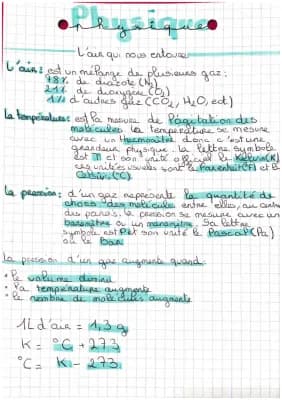 Physique
physique
L'air qui nous entoure
L'air : est un mélange de plusieurs gaz :
78% de diazote (N₂)
21% de dioxygène (O₂)
1% d'autres gaz (CO₂, H₂O, ect)
La température : est la mesure de l'agitation des
molécules la température se mesure
avec un thermomètre donc c'est une
grandeur physique. La lettre symbole
est T et son unité officiel le Kelvin (K)
ces unités usuels sont le Farenheit (F) et le
Celsius (°C)
La pression : d'un gaz représente la quantité de
chocs des molécule entre elles, au contact
des parois. la pression se mesure avec un
baromètre ou un manomètre. Sa lettre
symbole est P et son unité le Pascal (Pa)
ou le bar
La pression d'un gaz augmente quand :
• le volume diminu
• la température augmente
• le nombre de molécules augmente
1L d'air = 1,3 g
K = °C + 273
°C = K - 273